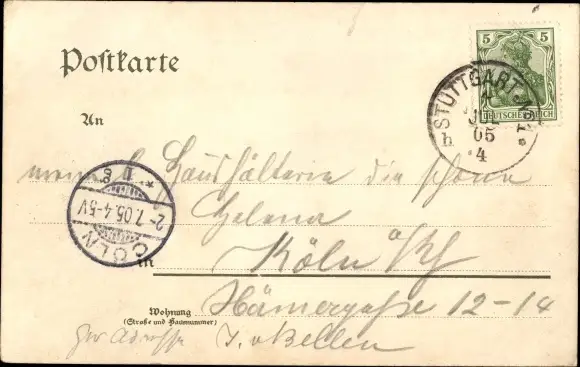 5 5
DEUTSCHES REICH
Postkarte
STUTTGART No 1
JUL
05
4
h
An
meine l. Haushälterin die schöne
Helena
CÖLN
2.7.05.4-5V
in Köln a/Rh
Wohnung
(Straße und Hausnummer)
Hämergasse 12-14
per Adresse J.